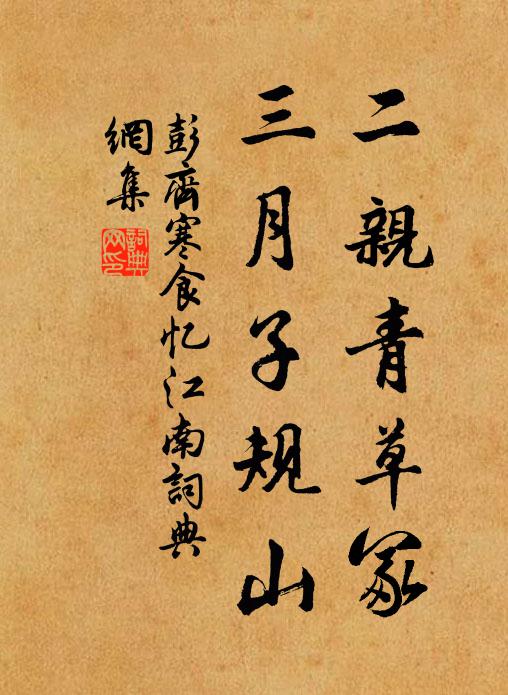 二親青草冢
三月子規山
彭齊寒食忆江南詞典
網集
詞典
网印